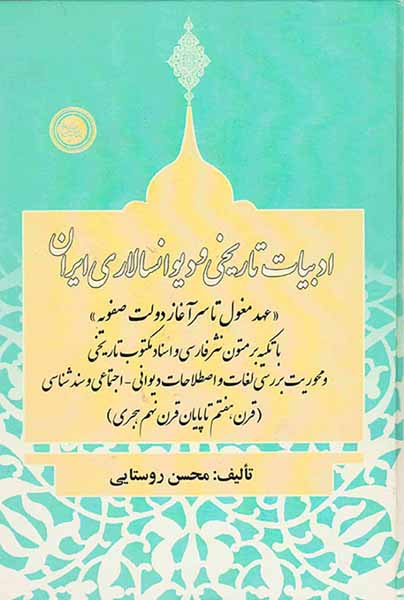 ادبیات تاریخی و دیوانسالاری ایران
«عهد مغول تا سرآغاز دولت صفویه»
با تکیه بر متون نثر فارسی و اسناد مکتوب تاریخی
و محوریت بررسی لغات و اصطلاحات دیوانی - اجتماعی و سندشناسی
(قرن هفتم تا پایان قرن نهم هجری)
تألیف: محسن روستایی